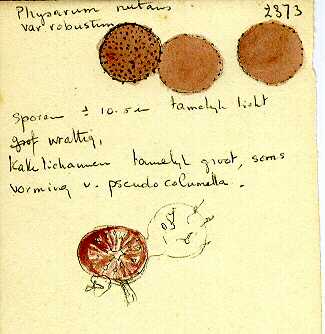 Physarum nutans 2873
var robustum
Sporen ± 10.5 u tamelijk licht
grof wrattig,
Kalklichamen tamelijk groot, soms
vorming v. pseudocolumella.